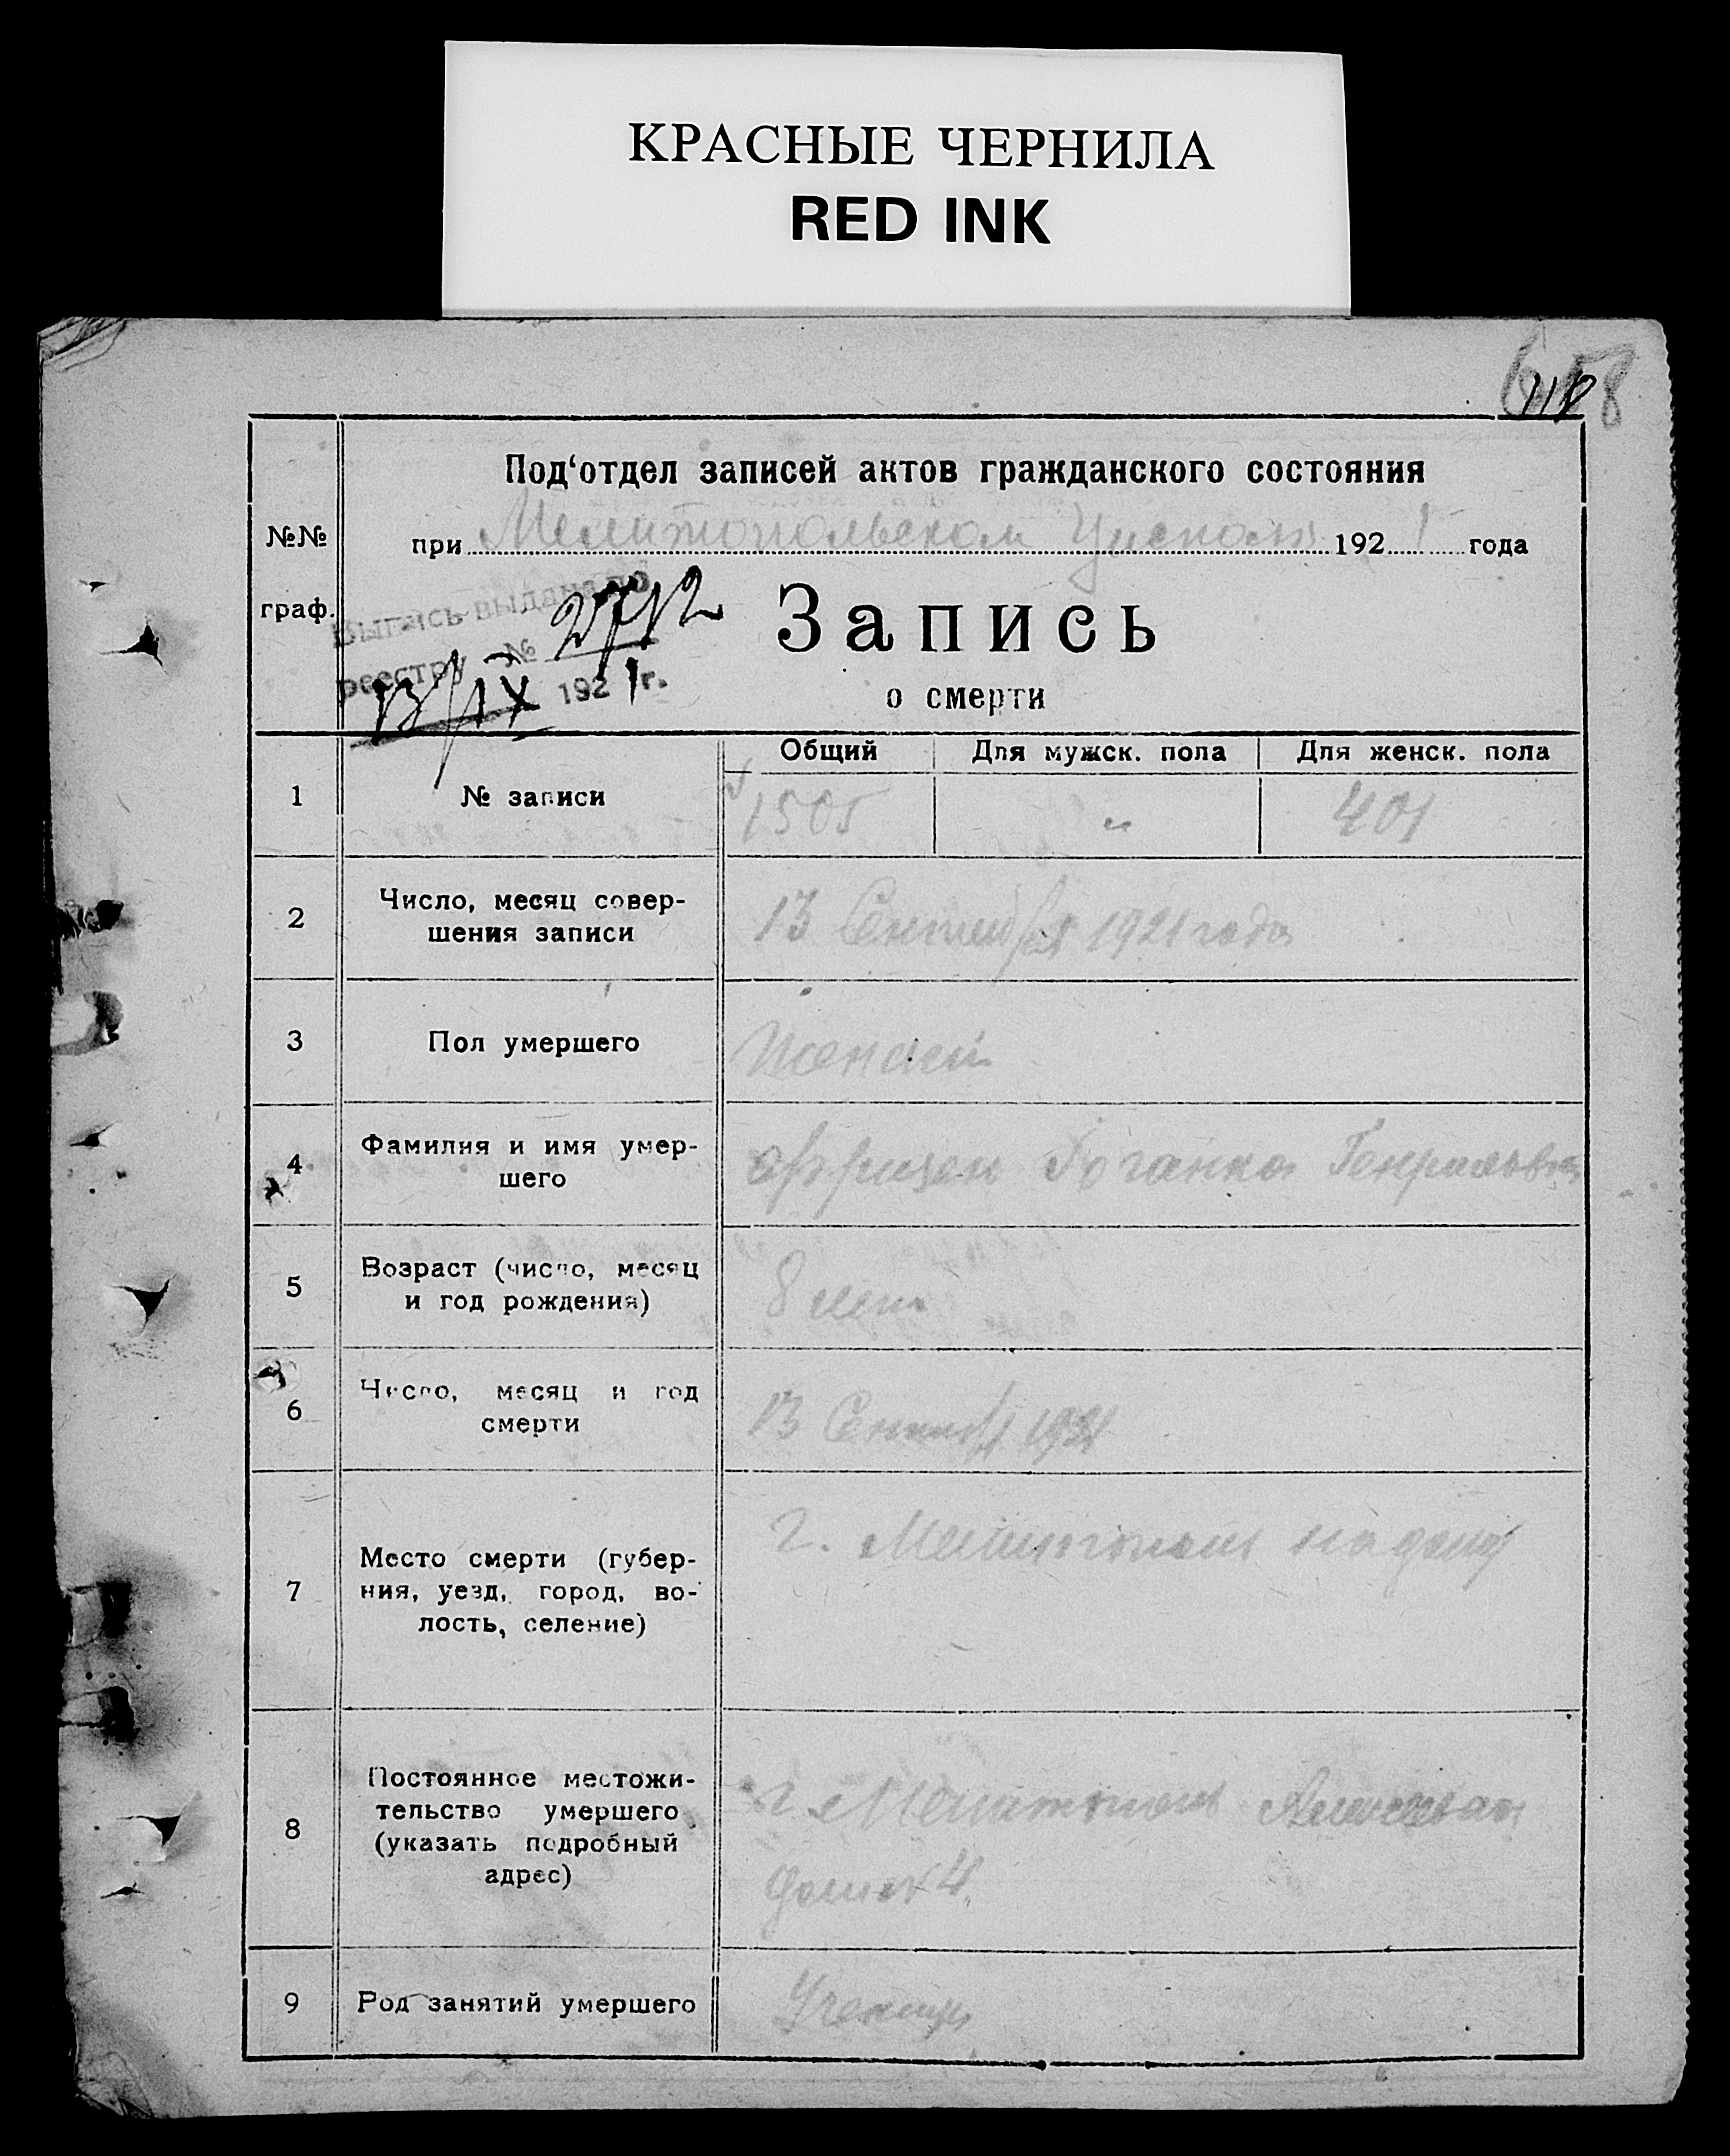 КРАСНЫЕ ЧЕРНИЛА
RED INK
Под‘отдел записей актов гражданского состояния
№№
граф.
при Мелитопольском Уисполк 1921 года
Выпись выдана по
реестру № 2712
13/IX 1921 г.
Запись
о смерти
Общий Для мужск. пола Для женск. пола
1 № записи 1505 „ 401
2 Число, месяц совер-
шения записи 13 Сентября 1921 года
3 Пол умершего Женский
4 Фамилия и имя умер-
шего Фризен Иоганна Генриховна
5 Возраст (число, месяц
и год рождения) 8 лет
6 Число, месяц и год
смерти 13 Сентяб 1921
7 Место смерти (губер-
ния, уезд, город, во-
лость, селение) г. Мелитополь на дому
8 Постоянное местожи-
тельство умершего
(указать подробный
адрес) г. Мелитополь
дом № 4
9 Род занятий умершего Ученица